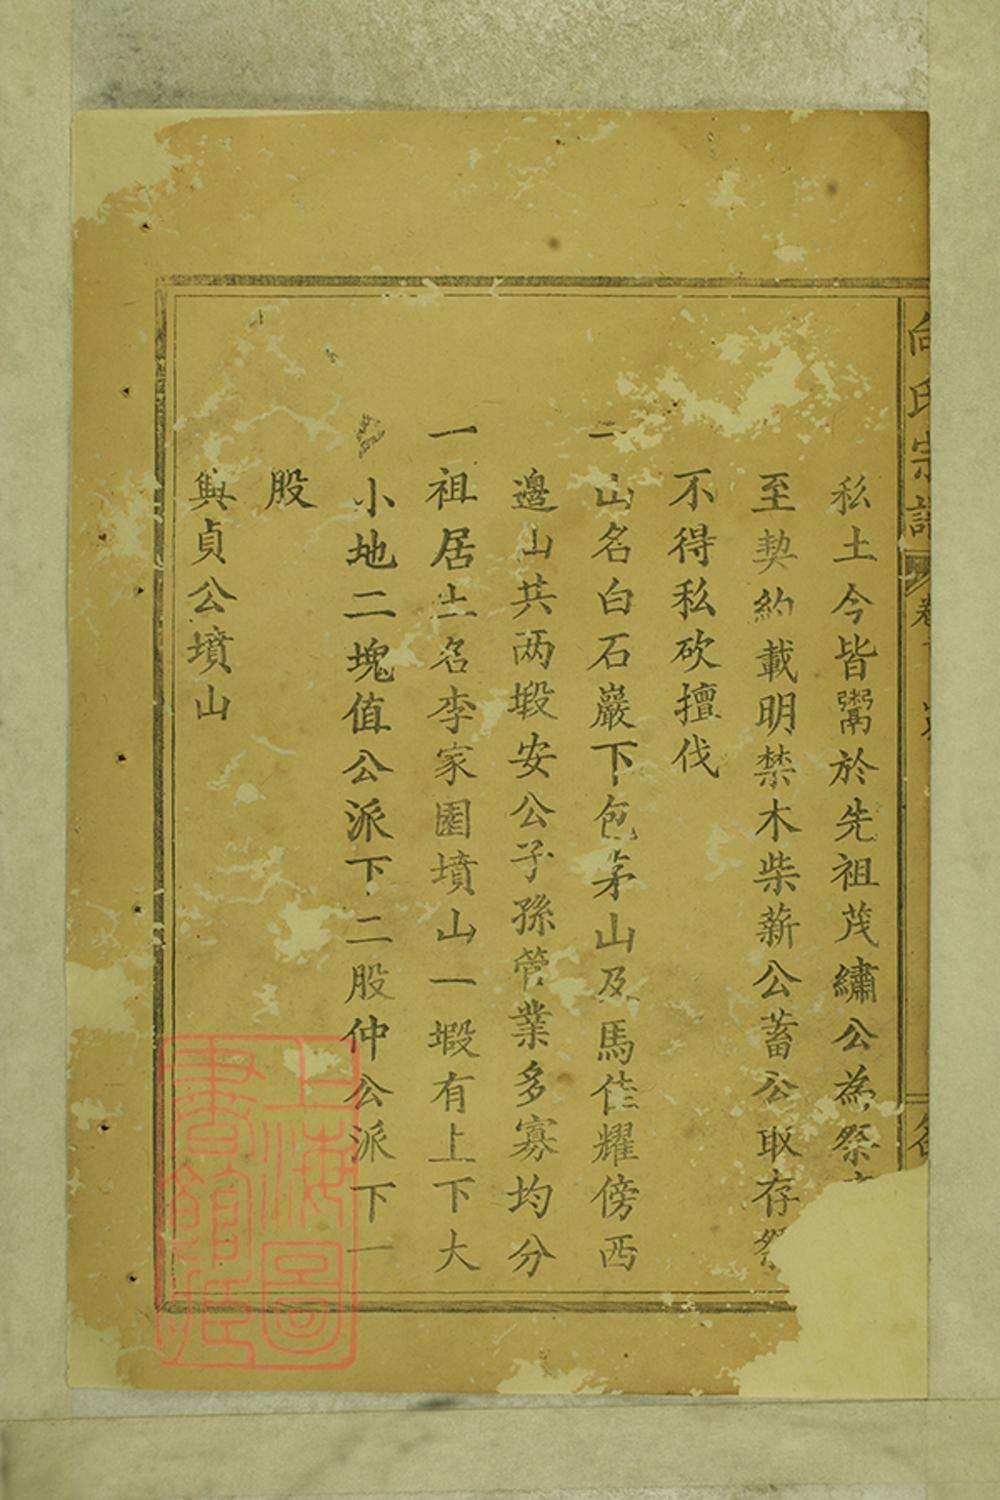 向氏宗譜
卷
私土今皆鬻於先祖茂繡公為祭
至契約載明禁木柴薪公蓄公取存祭
不得私砍擅伐
一山名白石巖下包茅山及馬佳耀傍西
邊山共两塅安公子孫管業多寡均分
一祖居土名李家園墳山一塅有上下大
小地二塊值公派下二股仲公派下一
股
與貞公墳山
上海圖
書館